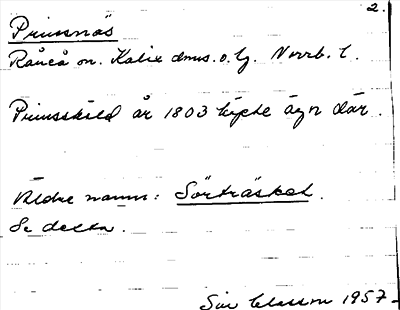 2.
Prinsnäs
Råneå sn. Kalix dms. o. tg. Norrb. l.
Prinsskiöld år 1803 köpte äga där.
Äldre namn: Sörträsket.
Se detta.
Siv Classon 1957